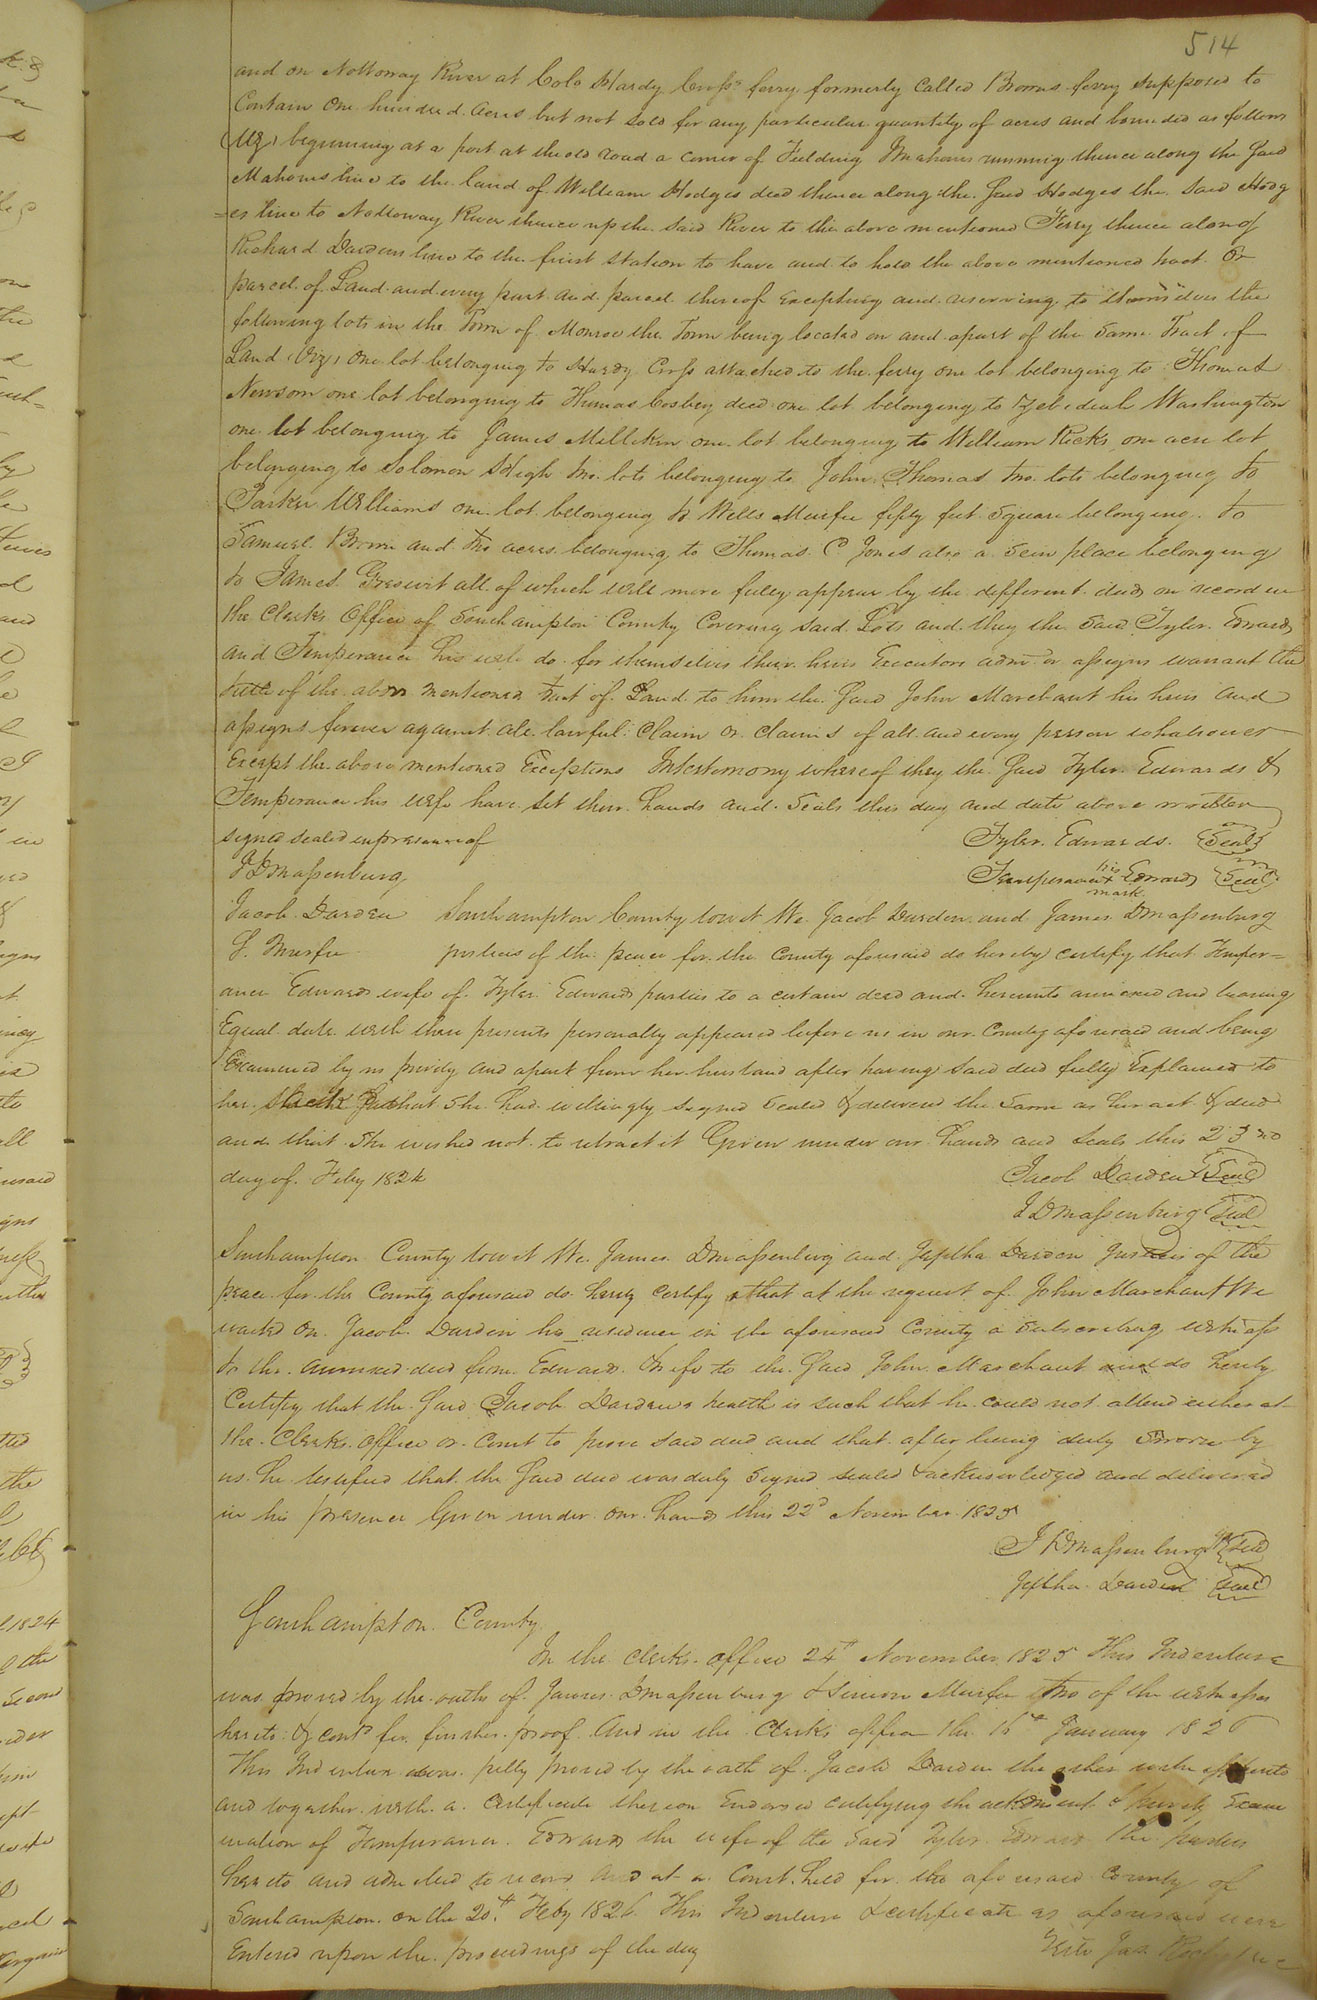 514
and on Nottoway River at Colo Hardy Cross's ferry formerly Called Browns ferry supposed to
Contain one hundred acres but not sold for any particular quantity of acres and bounded as follows
(Viz) beginning at a post at the old road a corner of Fielding Mahones running thence along the said
Mahones line to the land of William Hodges decd thence along the said Hodges the said Hodg
=es line to Nottoway River thence up the said River to the above mentioned Ferry thence along
Richard Dardens line to the first station to have and to hold the above mentioned tract or
parcel of Land and every part and parcel thereof excepting and reserving to themselves the
following lots in the Town of Monroe the Town being located on and apart of the same Tract of
Land (Viz) one lot belonging to Hardy Cross attached to the ferry one lot belonging to Thomas
Newsom one lot belonging to Thomas Cosbey decd one lot belonging to Zebedial Washington
one lot belonging to James Millikin one lot belonging to William Ricks one acre lot
belonging to Solomon High two lots belonging to John Thomas two lots belonging to
Parker Williams one lot belonging to Wells Murfee fifty feet square belonging to
Samuel Brown and two acres belonging to Thomas C Jones also a sein place belonging
to James all of which will more fully appear by the different deeds on record in
the Clerks Office of Southampton County Covering said Lots and they the said Tyler Edwards
and Temperance his wife do for themselves their heirs Executors admr or assigns warrant the
title of the above mentioned tract of Land to him the said John Marchant his heirs and
assigns forever against all lawful claim or claims of all and every person whatsoever
Except the above mentioned Exceptions Intestimony whereof they the said Tyler Edwards &
Temperance his wife have set their hands and seals this day and date above written
signed sealed in presence of Tyler Edwards (Seal)
J D Massenburg Temperance his + mark Edwards (Seal)
Jacob Darden Southampton County towit We Jacob Darden and James D Massenburg
S. Murfee justices of the peace for the County aforesaid do hereby certify that Temper=
ance Edwards wife of Tyler Edwards parties to a certain deed and hereunto annexed and bearing
Equal date with these presents personally appeared before us in our County aforesaid and being
Examined by us privily and apart from her husband after having said deed fully Explained to
her that she had willingly signed sealed & delivered the same as her act & deed
and that she wished not to retract it Given under our hands and seals this 23rd
day of Feby 1824 Jacob Darden (Seal)
J D Massenburg (Seal)
Southampton County towit We James D Massenburg and Jeptha Darden Justices of the
peace for the County aforesaid do hereby certify that at the request of John Marchant We
waited on Jacob Darden his residence in the aforesaid County a subscribing witness
to the annexed deed from Edwards & wife to the said John Marchant and do hereby
Certify that the said Jacob Dardens health is such that he could not attend either at
the Clerks office or Court to prove said deed and that after being duly sworn by
us he testified that the said deed was duly signed sealed & acknowledged and delivered
in his presence Given under our hands this 22d November 1825
J D Massenburg (Seal)
Jeptha Darden (Seal)
Southampton County
In the clerks office 24th November 1825 This Indenture
was proved by the oaths of James D Massenburg & Simon Murfee two of the witnesses
hereto & contd for further proof And in the Clerks office the 16th January 1826
This Indenture was fully proved by the oath of Jacob Darden the other witness hereto
and together with a certificate thereon Endorsed certifying the & privily Exam
ination of Temperance Edwards the wife of the said Tyler Edwards the parties
hereto and admitted to record And at a Court held for the aforesaid County of
Southampton on the 20th Feby 1826 This Indenture & certificate as aforesaid were
Entered upon the proceedings of the day
Teste Jas Rochelle